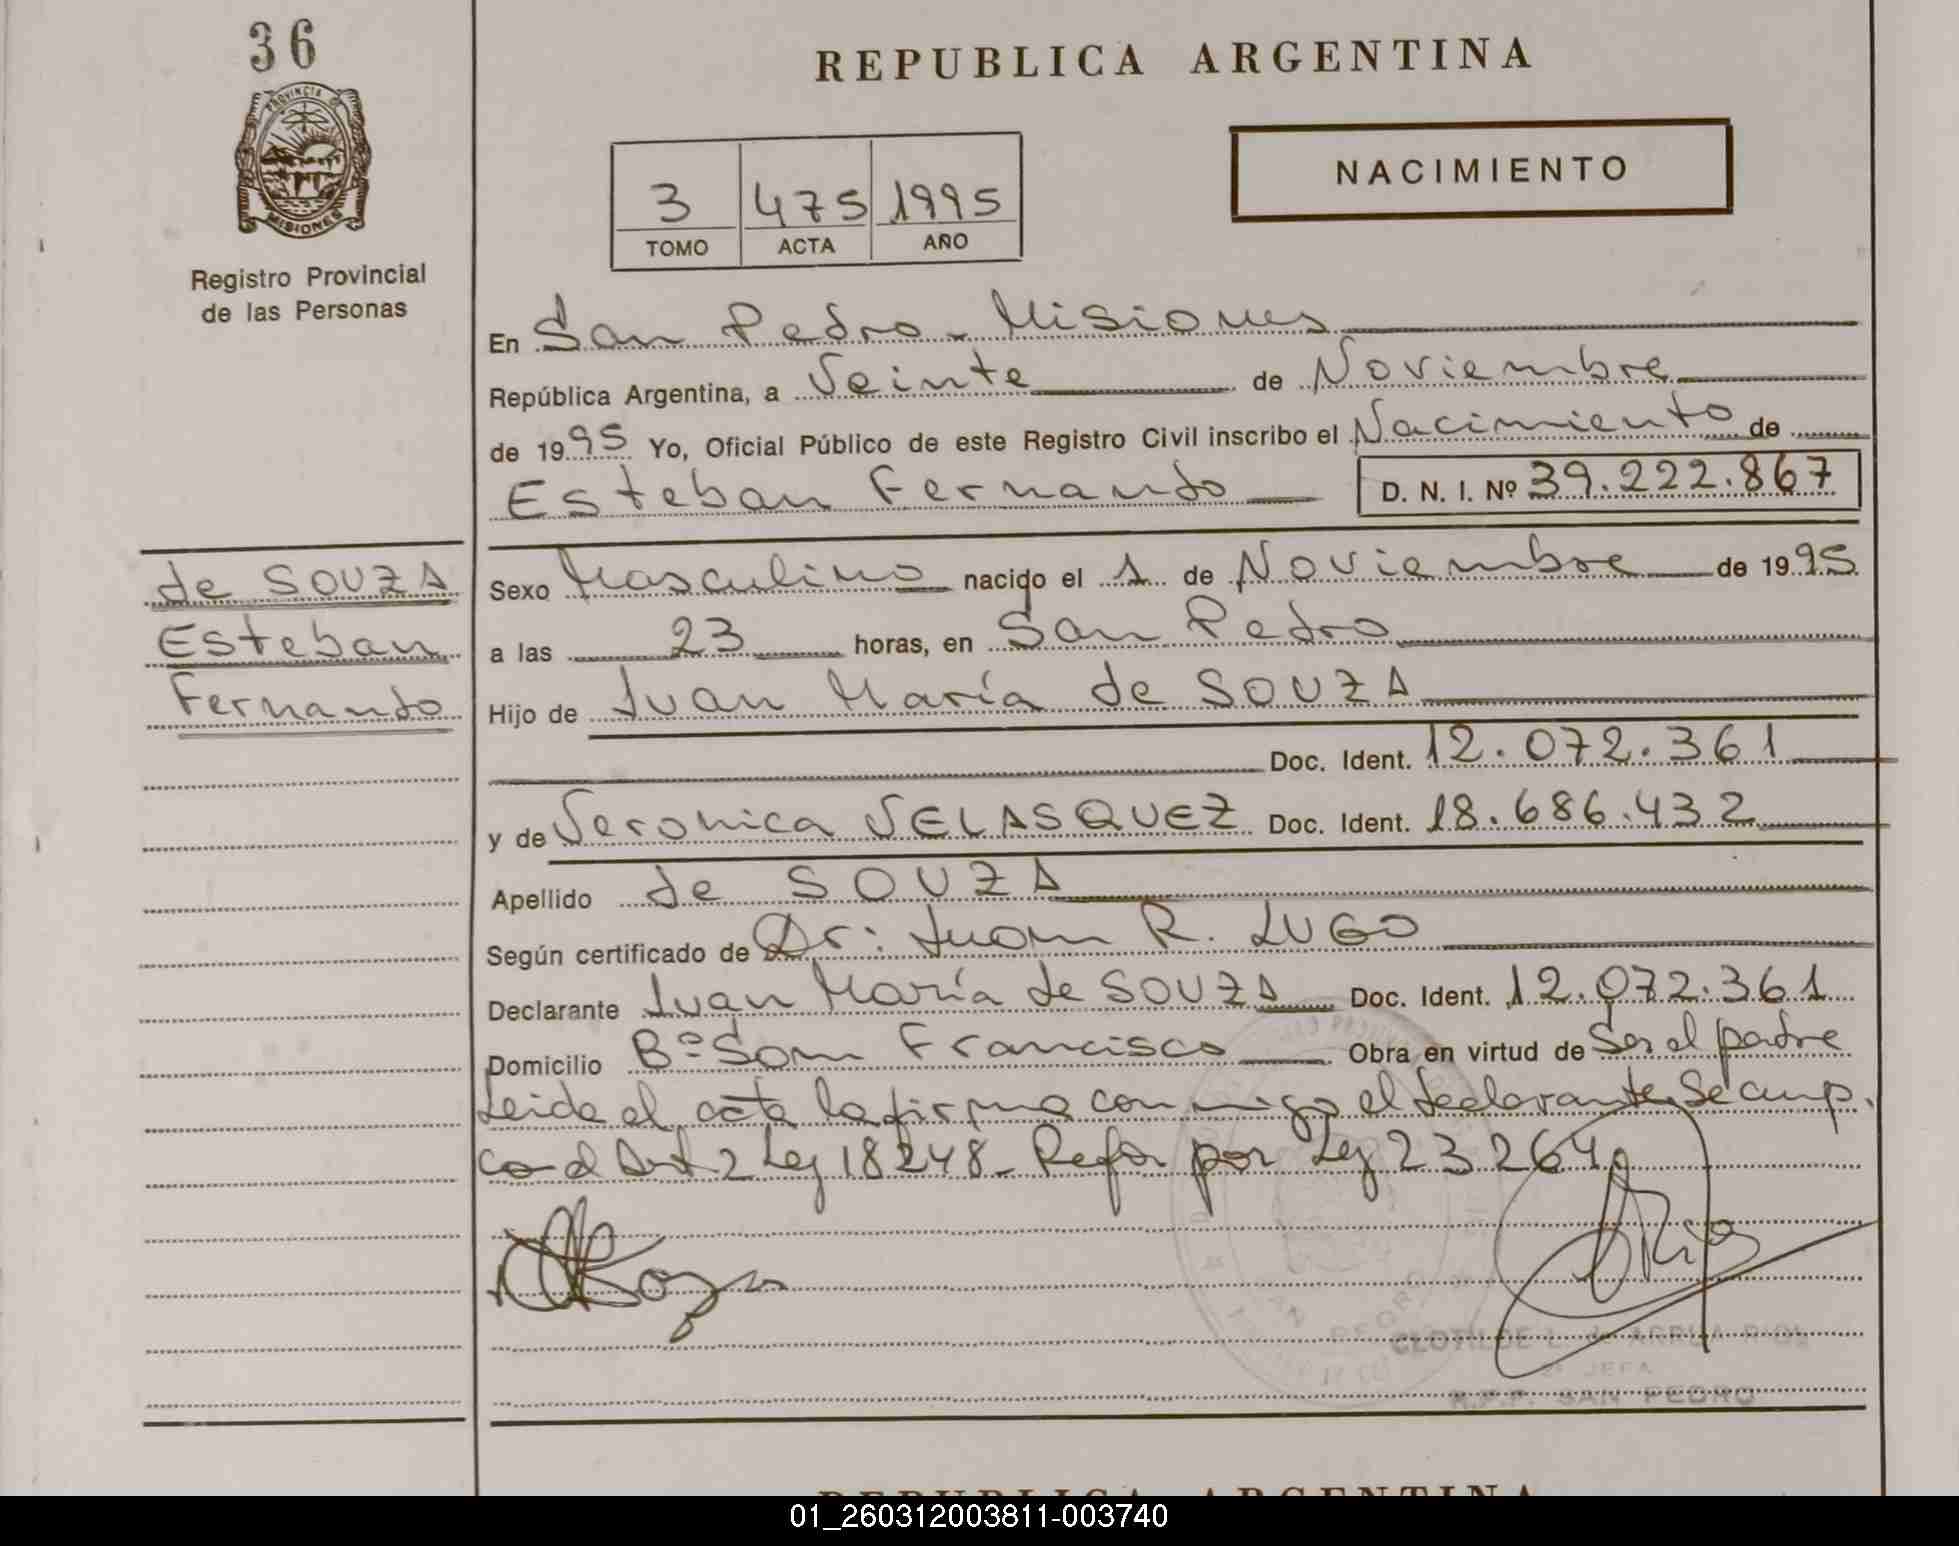 36
PROVINCIA DE
MISIONES
Registro Provincial
de las Personas
REPUBLICA ARGENTINA
NACIMIENTO
3 475 1995
TOMO ACTA AÑO
En San Pedro - Misiones
República Argentina, a Veinte de Noviembre
de 1995 Yo, Oficial Público de este Registro Civil inscribo el Nacimiento de
Esteban Fernando D. N. I. Nº 39.222.867
de SOUZA
Esteban
Fernando
Sexo Masculino nacido el 1 de Noviembre de 1995
a las 23 horas, en San Pedro
Hijo de Juan María de SOUZA
Doc. Ident. 12.072.361
y de Veronica VELASQUEZ Doc. Ident. 18.686.432
Apellido de SOUZA
Según certificado de Dr: Juan R. LUGO
Declarante Juan María de SOUZA Doc. Ident. 12.072.361
Domicilio Bº San Francisco Obra en virtud de Ser el padre
Leida el acta la firma con migo el declarante. Se cump.
co el Art 2 Ley 18248 - Refor por Ley 23264
CLOTILDE L.
2ª JEFA
R.P.P. SAN PEDRO
REPUBLICA ARGENTINA
01_260312003811-003740